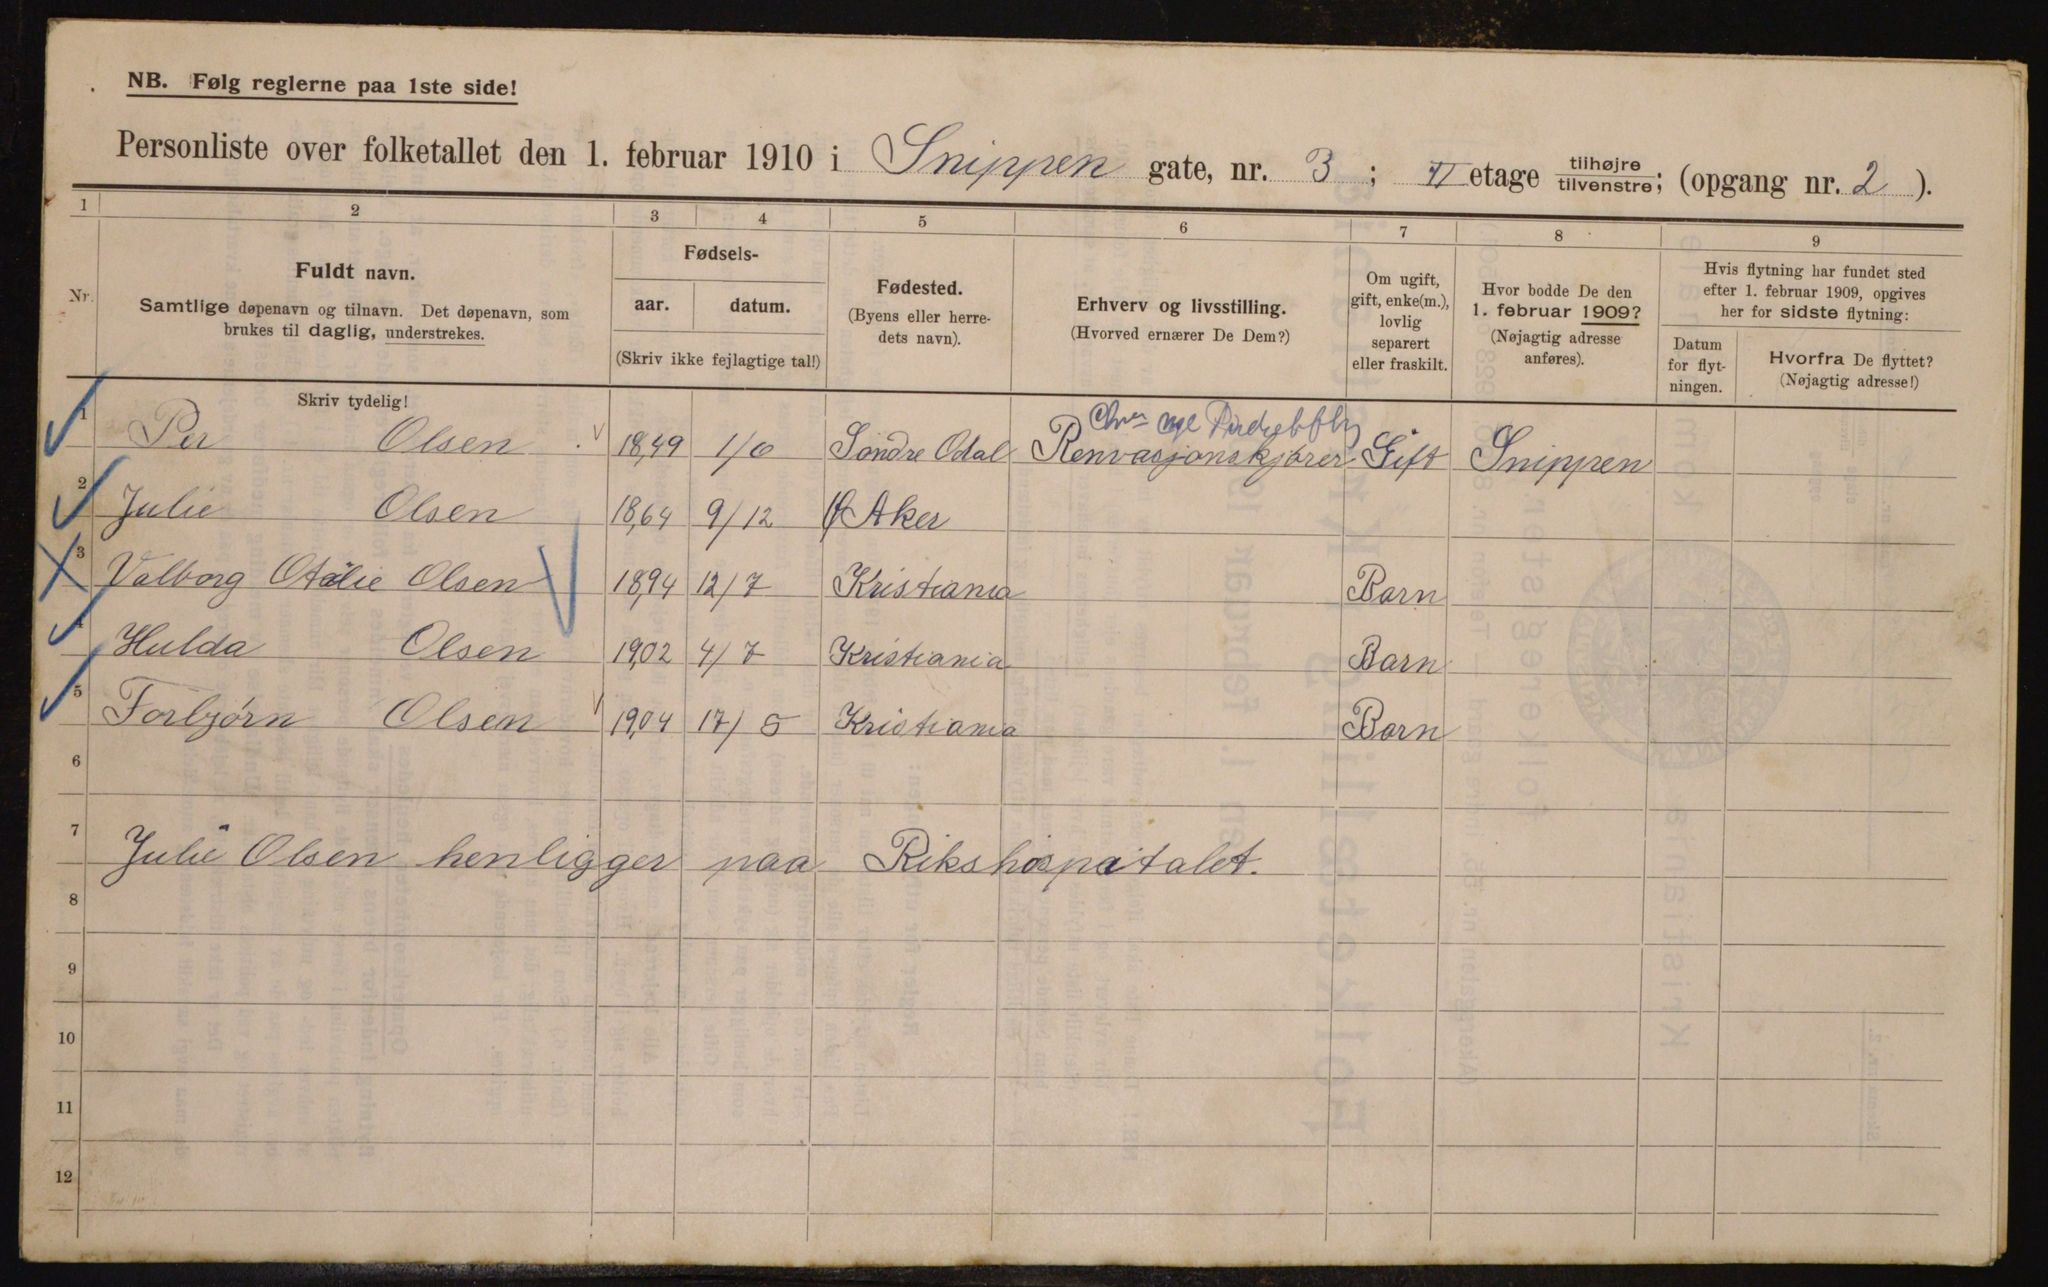 NB. Følg reglerne paa 1ste side!
Personliste over folketallet den 1. februar 1910 i Snippen gate, nr. 3; II etage tilhøjre/tilvenstre; (opgang nr. 2).
1 2 3 4 5 6 7 8 9
Nr.
Fuldt navn.
Samtlige døpenavn og tilnavn. Det døpenavn, som
brukes til daglig, understrekes.
Fødsels-
aar. datum.
(Skriv ikke fejlagtige tal!)
Fødested.
(Byens eller herre-
dets navn).
Erhverv og livsstilling.
(Hvorved ernærer De Dem?)
Om ugift,
gift, enke(m.),
lovlig
separert
eller fraskilt.
Hvor bodde De den
1. februar 1909?
(Nøjagtig adresse
anføres).
Hvis flytning har fundet sted
efter 1. februar 1909, opgives
her for sidste flytning:
Datum
for flyt-
ningen.
Hvorfra De flyttet?
(Nøjagtig adresse!)
Skriv tydelig!
1 Per Olsen 1849 Søndre Odal Renvasjonskjører Gift Snippen
2 Julie Olsen 1864 9/12 Aker
3 Valborg Otalie Olsen 1894 12/7 Kristiania Barn
4 Hulda Olsen 1902 4/7 Kristiania Barn
5 Torbjørn Olsen 1904 17/5 Kristiania Barn
6
7 Julie Olsen henligger paa Rikshospitalet.
8
9
10
11
12